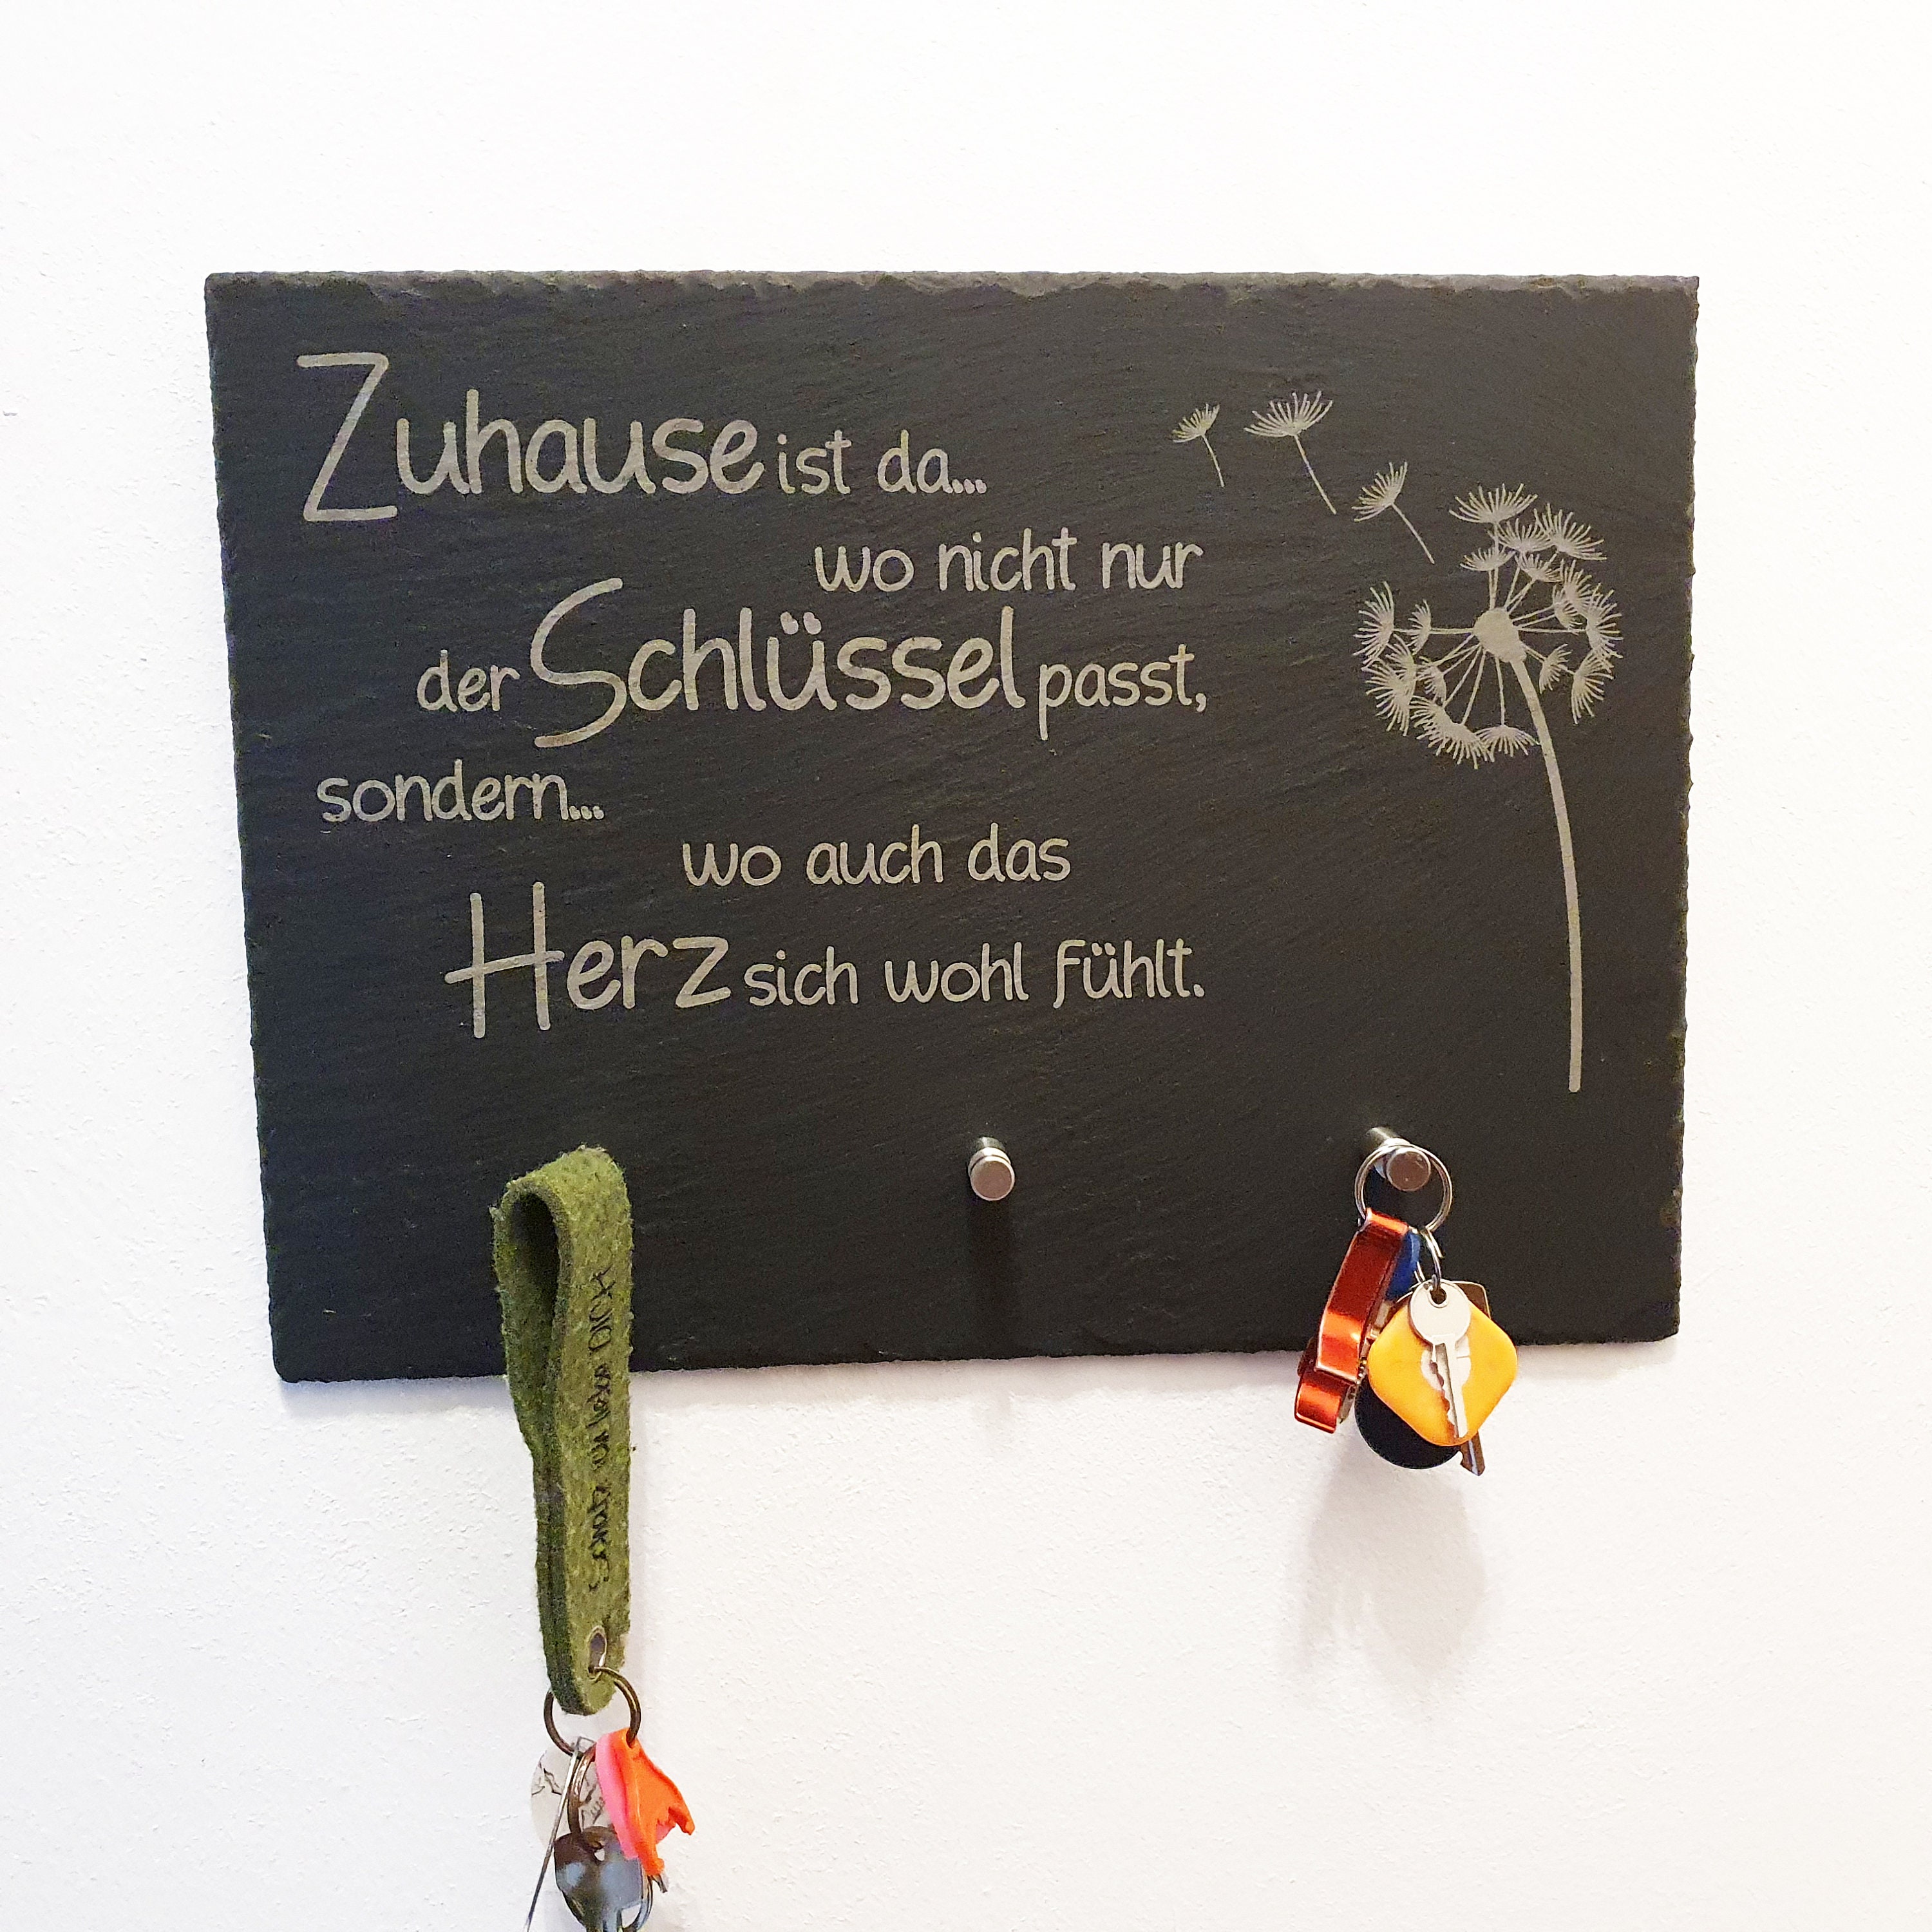 Zuhause ist da...
wo nicht nur
der Schlüssel passt,
sondern...
wo auch das
Herz sich wohl fühlt.